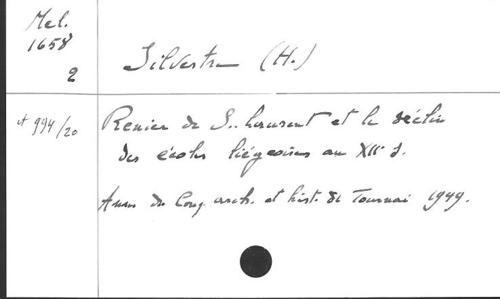 Mel.
1658
2
Silvestre (H.)
et 994/20
Renier de S. Laurent et le déclin
des écoles liégeoises au XIIe s.
Ann. du Cong. arch. et hist. de Tournai 1949.